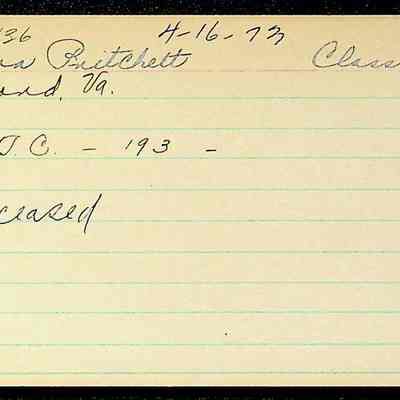 136 4-16-73
Pritchett Class
ond, Va.
T.C. - 193 -
ceased